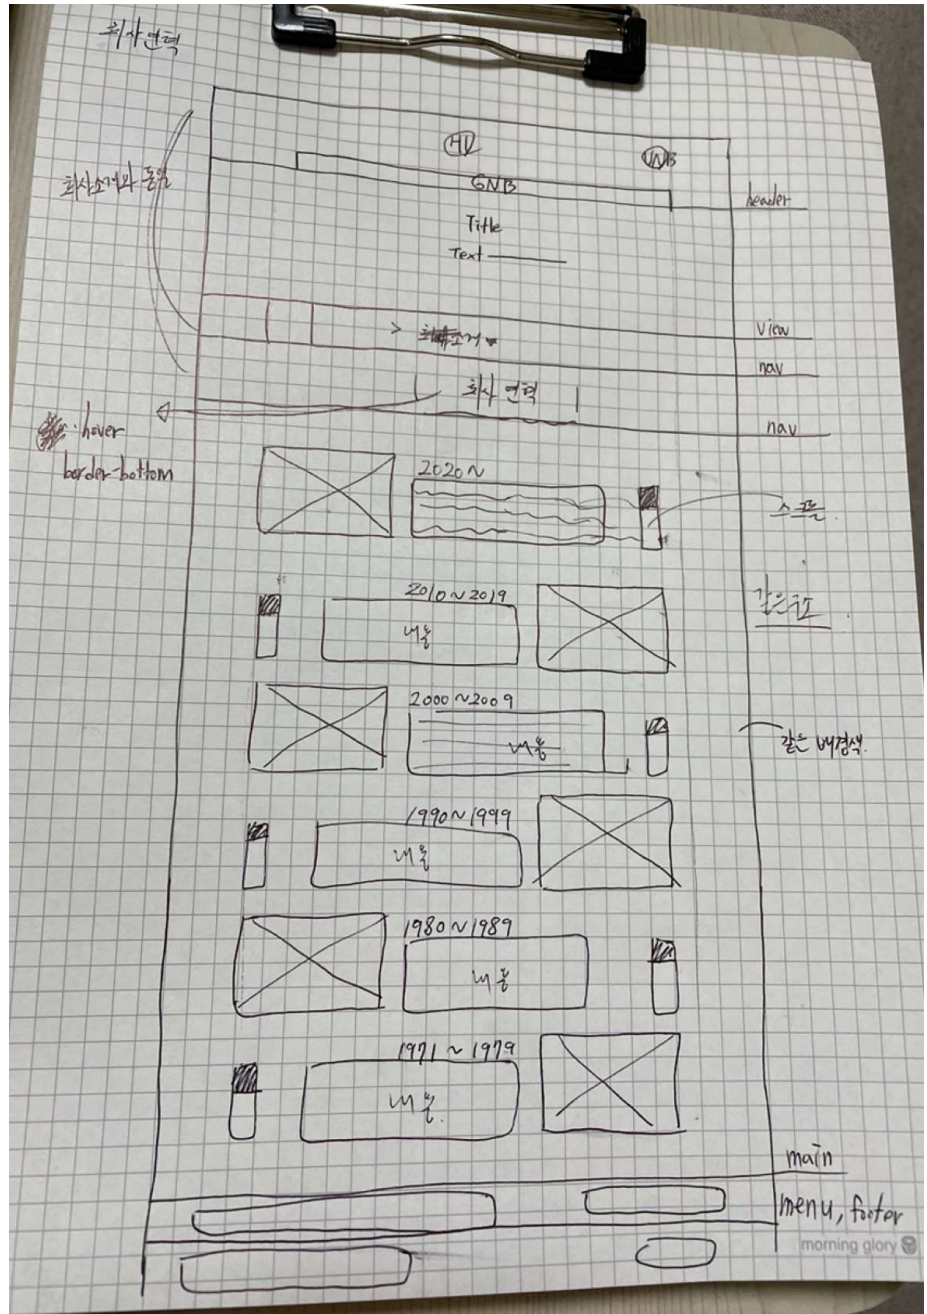 회사연혁
회사소개와 동일
GNB
header
Title
Text
View
>
nav
회사 연혁
nav
:hover
border-bottom
2020~
스크롤
2010~2019
내용
같은요소
2000~2009
내용
같은 배경색.
1990~1999
내용
1980~1989
내용
1971~1979
내용
main
menu, footer
morning glory